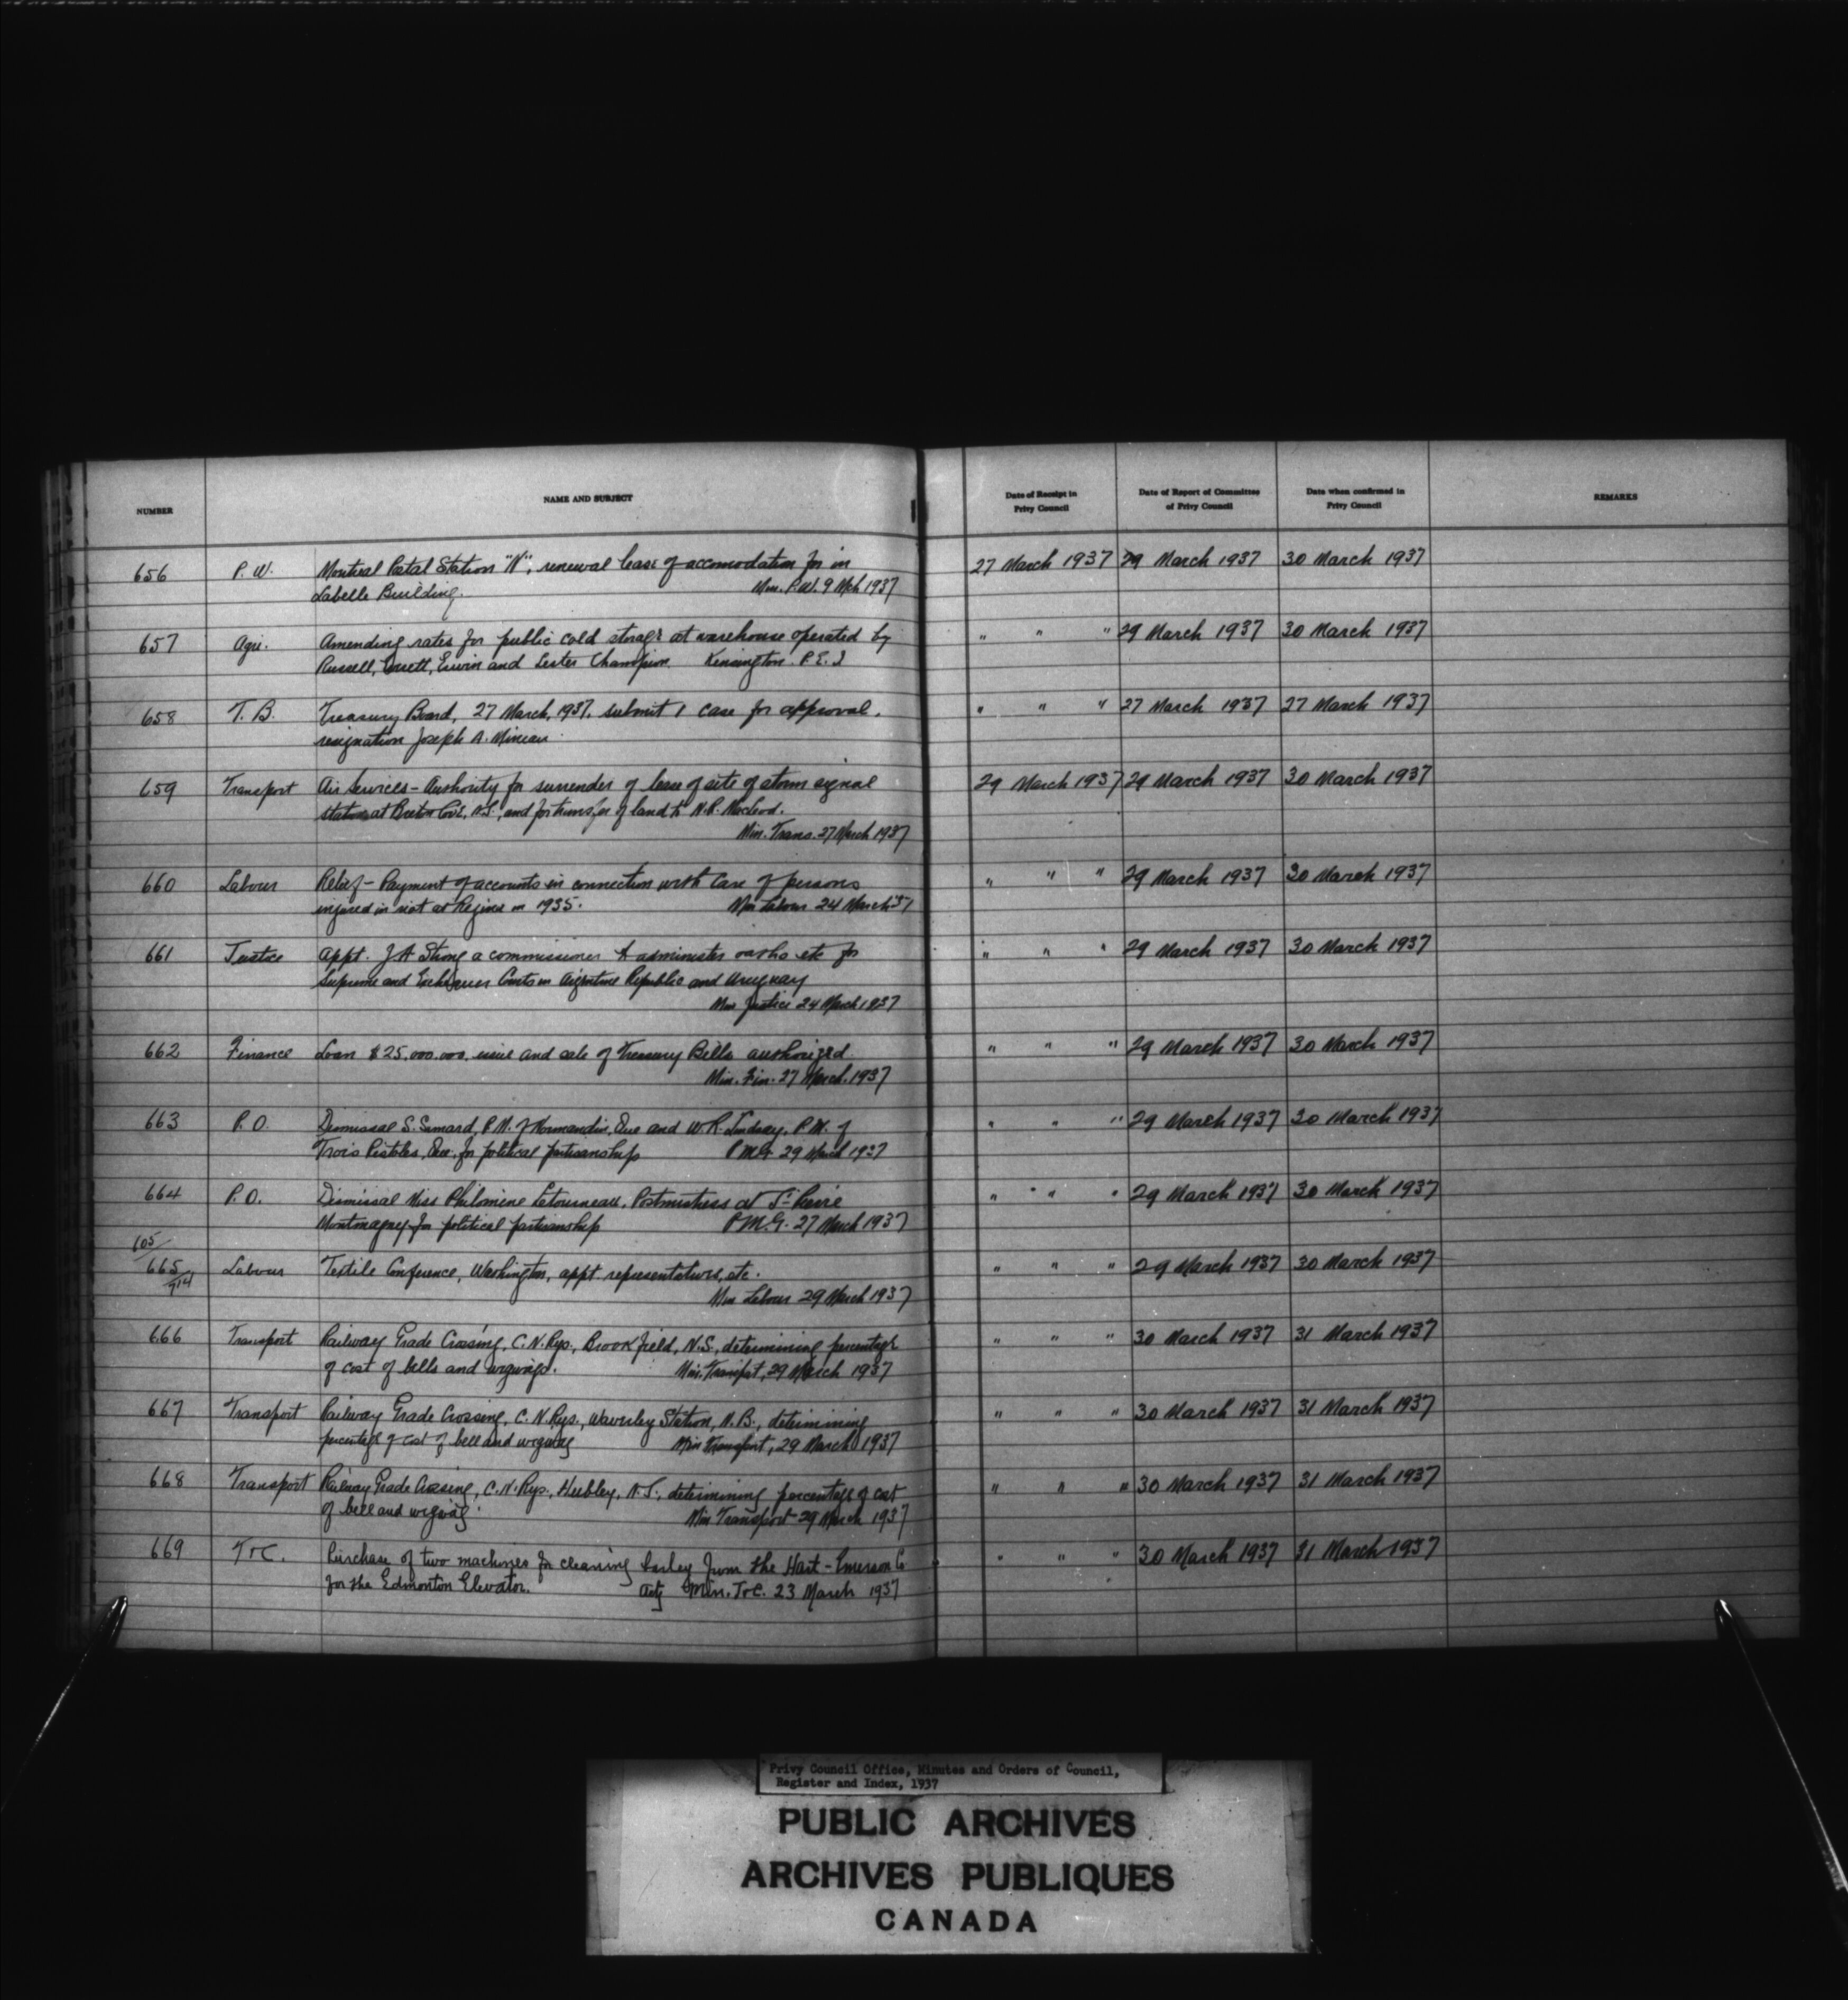 NUMBER NAME AND SUBJECT Date of Receipt in Privy Council Date of Report of Committee of Privy Council Date when confirmed in Privy Council REMARKS
656 P. W. Montreal Postal Station "N", renewal lease of accomodation for in 27 March 1937 29 March 1937 30 March 1937
Labelle Building. Min. P.W. 9 Mch 1937
657 Agri. Amending rates for public cold storage at warehouse operated by " " " 29 March 1937 30 March 1937
Russell, Erwin and Lester Champion Kensington. P.E.I
658 T. B. Treasury Board, 27 March, 1937, submit 1 case for approval. " " " 27 March 1937 27 March 1937
resignation Joseph A.
659 Transport Air Services - Authority for surrender of lease of site of storm signal 29 March 1937 29 March 1937 30 March 1937
station at Breton Cove, N.S., and for transfer of land to N.R. McLeod.
Min. Trans. 27 March 1937
660 Labour Relief - Payment of accounts in connection with care of persons " " " 29 March 1937 30 March 1937
injured in riot at Regina in 1935. Min Labour 24 March 37
661 Justice Appt. J A Strong a commissioner to administer oaths etc for " " " 29 March 1937 30 March 1937
Supreme and Exchequer Courts in Argentine Republic and Uruguay
Min Justice 24 March 1937
662 Finance Loan $25,000,000, issue and sale of Treasury Bills authorized. " " " 29 March 1937 30 March 1937
Min. Fin. 27 March. 1937
663 P. O. Dismissal S. Simard, P.M. of Normandin, Que and W.R. Lindsay, P.M. of " " " 29 March 1937 30 March 1937
Trois Pistoles, Que. for political partisanship P.M.G. 29 March 1937
664 P. O. Dismissal Miss Philomene Letourneau, Postmistress at St. Pierre " " " 29 March 1937 30 March 1937
Montmagny for political partisanship P.M.G. 27 March 1937
605/
665 Labour Textile Conference, Washington, appt representatives, etc. " " " 29 March 1937 30 March 1937
/914 Min Labour 29 March 1937
666 Transport Railway Grade Crossing, C.N.Rys., Brookfield, N.S., determining percentage " " " 30 March 1937 31 March 1937
of cost of bells and wigwags. Min. Transport, 29 March 1937
667 Transport Railway Grade Crossing, C.N.Rys., Waverley Station, N.B., determining " " " 30 March 1937 31 March 1937
percentage of cost of bell and wigwag Min Transport, 29 March 1937
668 Transport Railway Grade Crossing, C.N.Rys., Hubley, N.S., determining percentage of cost " " " 30 March 1937 31 March 1937
of bell and wigwag. Min Transport 29 March 1937
669 T & C. Purchase of two machines for cleaning barley from the Hart-Emerson Co " " " 30 March 1937 31 March 1937
for the Edmonton Elevator. Actg Min. T&C. 23 March 1937
Privy Council Office, Minutes and Orders of Council,
Register and Index, 1937
PUBLIC ARCHIVES
ARCHIVES PUBLIQUES
CANADA